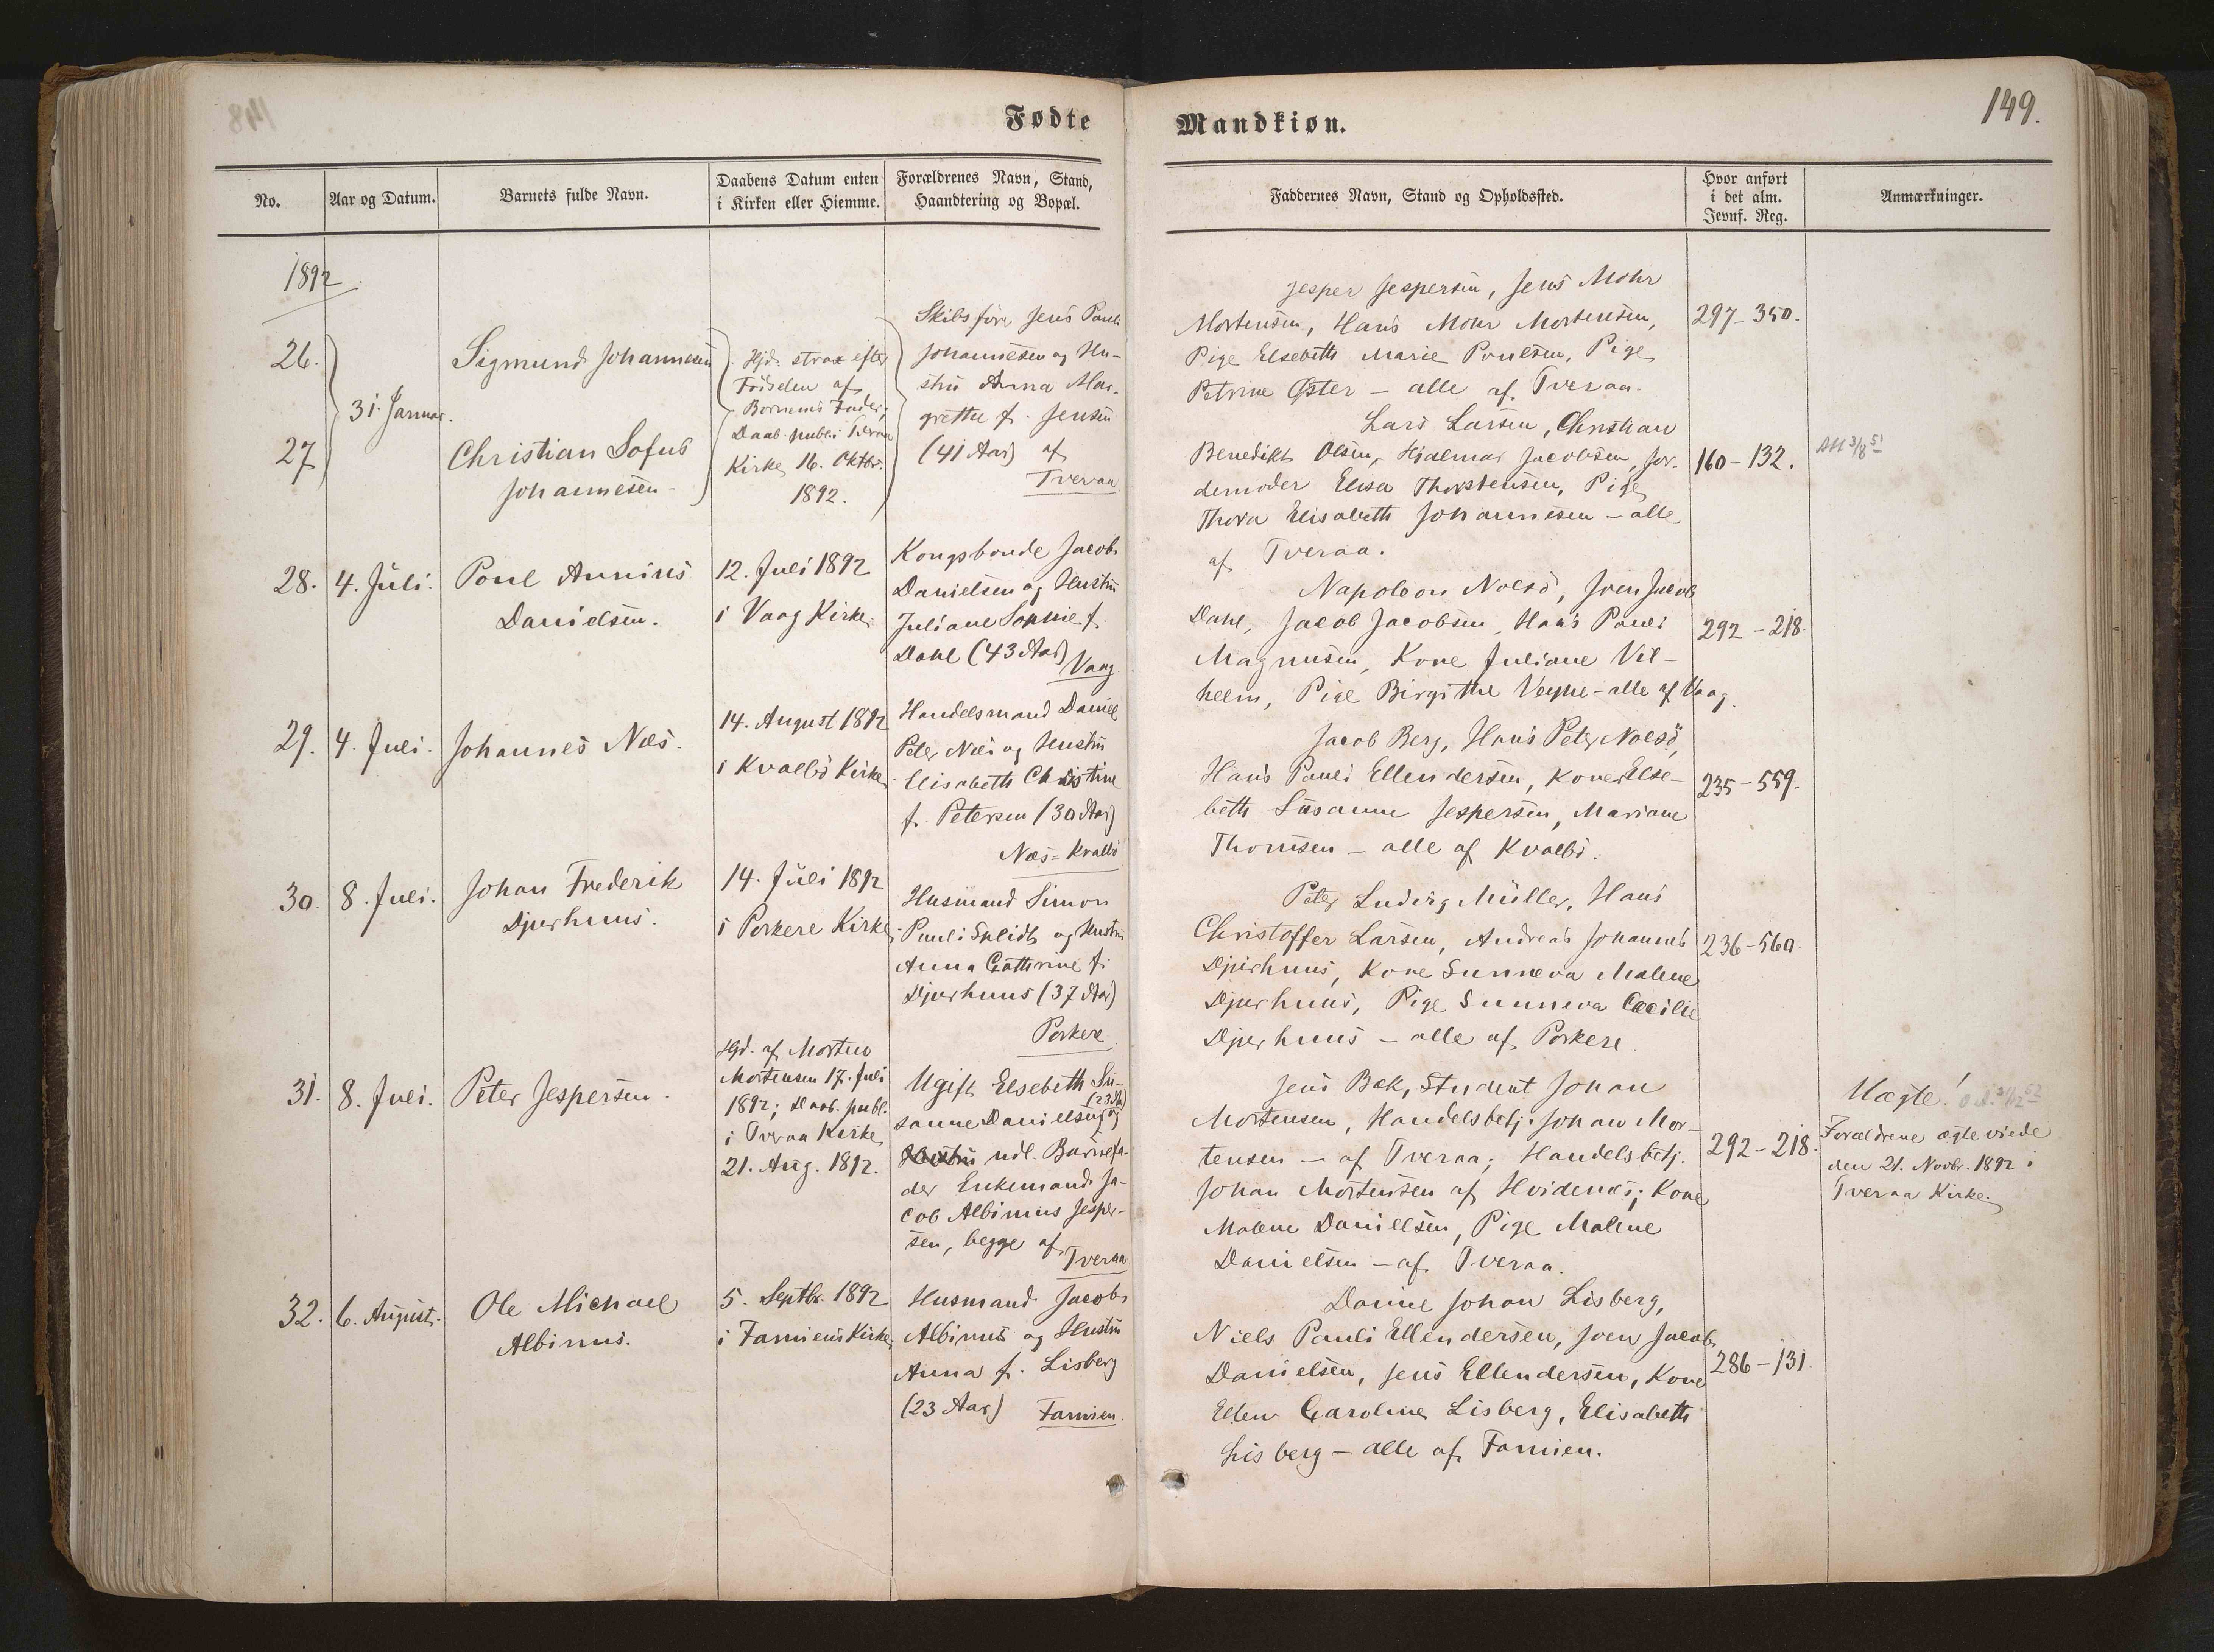 Fødte
Mandkiøn.
149.
No.
Aar og Datum.
Barnets fulde Navn.
Daabens Datum enten
i Kirken eller Hiemme.
Forældrenes Navn, Stand,
Haandtering og Bopæl.
Faddernes Navn, Stand og Opholdssted.
Hvor anført
i det alm.
Jevnf. Reg.
Anmærkninger.
1892
26.
27
31. Januar.
Sigmund Johannesen
Christian Sofus
Johannesen
Hjd. strax efter
Fødselen af
Barnets Fader;
Daab. publ. i Tveraa
Kirke 16. Oktbr.
1892.
Skibsfører Jens Pauli
Johannesen og Hu-
stru Anna Mar-
grethe f. Jensen
(41 Aar) af
Tveraa
Jesper Jespersen, Jens Mohr
Mortensen, Hans Mohr Mortensen,
Pige Elsebeth Marie Poulsen, Pige
Petrine Øster – alle af Tveraa.
297–350.
Lars Larsen, Christian
Benedikt Olsen, Hjalmar Jacobsen, Jor-
demoder Elisa Thorstensen, Pige
Thora Elisabeth Johannesen – alle
af Tveraa.
160–132.
28.
4. Juli.
Poul Anninus
Danielsen.
12. Juli 1892
i Vaag Kirke
Kongsbonde Jacob
Danielsen og Hustru
Juliane Sophie f.
Dahl (43 Aar)
Vaag
Napoleon Nolsø, Sven Jacob
Dahl, Jacob Jacobsen, Hans Pauli
Magnusen, Kone Juliane Vil-
helm, Pige Birgithe Veyhe – alle af Vaag.
292–218.
29.
4. Juli.
Johannes Næs.
14. August 1892
i Kvalbø Kirke
Handelsmand Daniel
Peter Næs og Hustru
Elisabeth Christine
f. Petersen (30 Aar)
Næs=Kvalbø
Jacob Berg, Hans Peter Nolsø,
Hans Pauli Ellendersen, Koner Else-
beth Susanne Jespersen, Mariane
Thomsen – alle af Kvalbø.
235–559.
30.
8. Juli.
Johan Frederik
Djurhuus.
14. Juli 1892
i Porkere Kirke
Husmand Simon
Pauli Splidt og Hustru
Anna Cathrine f.
Djurhuus (37 Aar)
Porkere
Peter Ludvig Müller, Hans
Christoffer Larsen, Andreas Johannes
Djurhuus, Kone Sunneva Malene
Djurhuus, Pige Sunneva Cecilie
Djurhuus – alle af Porkere
236–560.
31.
8. Juli.
Peter Jespersen.
Hjd. af Morten
Mortensen 17. Juli
1892; Daab. publ.
i Tveraa Kirke
21. Aug. 1892.
Ugift Elsebeth Su-
(23 Aar)
sanne Danielsen og
udl. Barnefa-
der Enkemand Ja-
cob Albinus Jesper-
sen, begge af
Tveraa
Jens Bæk, Student Johan
Mortensen, Handelsbetj. Johan Mor-
tensen – af Tveraa; Handelsbetj.
Johan Mortensen af Hvidenæs; Kone
Malene Danielsen, Pige Malene
Danielsen – af Tveraa.
292–218.
Uægte!
Forældrene ægteviede
den 21. Novbr. 1892 i
Tveraa Kirke.
32.
6. August.
Ole Michael
Albinus.
5. Septbr. 1892
i Famiens Kirke
Husmand Jacob
Albinus og Hustru
Anna f. Lisberg
(23 Aar)
Famien.
Daniel Johan Lisberg,
Niels Pauli Ellendersen, Sven Jacob
Danielsen, Jens Ellendersen, Kone
Ellen Caroline Lisberg, Elisabeth
Lisberg – alle af Famien.
286–131.